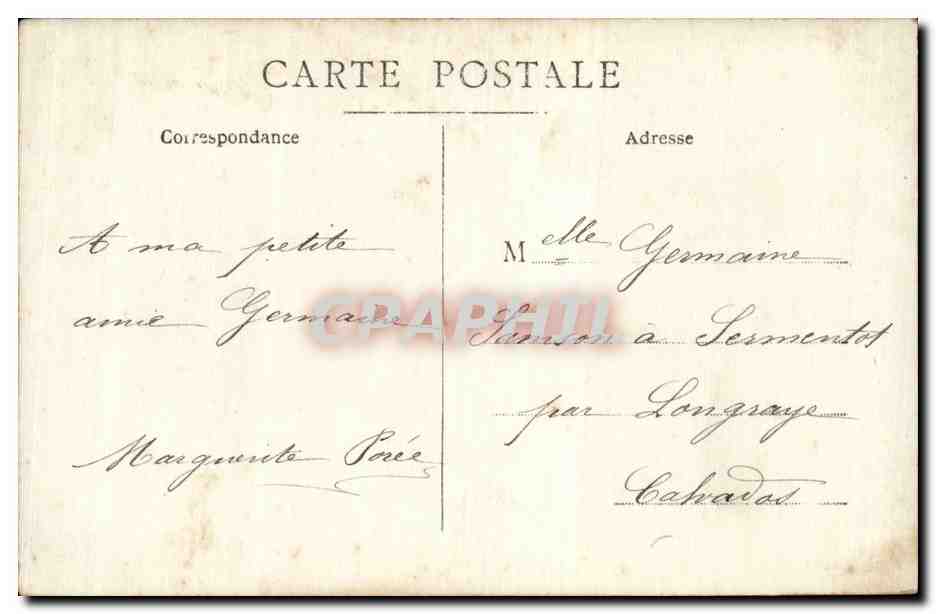 CARTE POSTALE
Correspondance
Adresse
A ma petite
amie Germaine
Marguerite Porée
Melle Germaine
Samson à Sermentot
par Longraye
Calvados
CPAPHIL